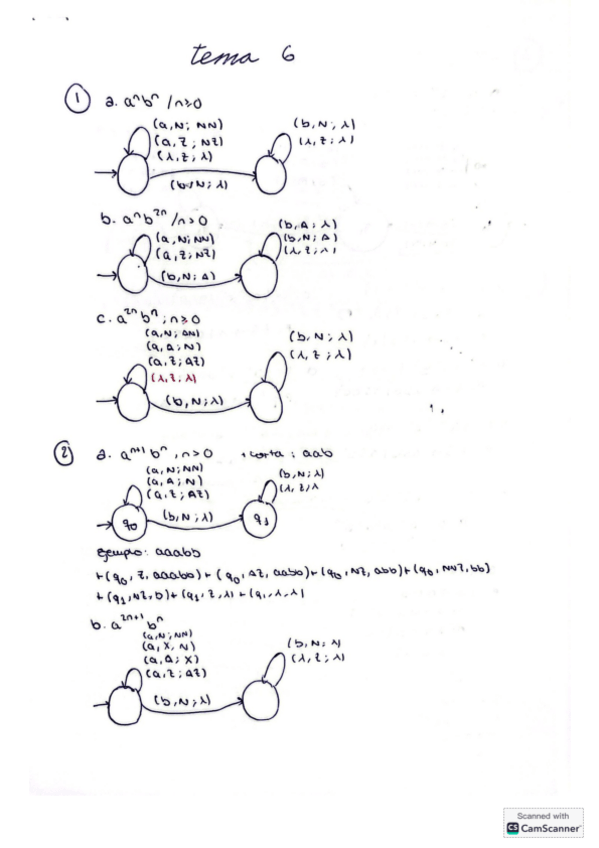 tema 6
① a. aⁿbⁿ / n≥0
(a,N; NN)
(a,Z; NZ)
(λ,Z; λ)
(b,N; λ)
(b,N; λ)
(λ,Z; λ)
b. aⁿb²ⁿ / n>0
(a,N; NN)
(a,Z; NZ)
(b,N; A)
(b,A; λ)
(b,N; A)
(λ,Z; λ)
c. a²ⁿbⁿ; n≥0
(a,N; AN)
(a,A; N)
(a,Z; AZ)
(λ,Z; λ)
(b,N; λ)
(b,N; λ)
(λ,Z; λ)
② a. aⁿ⁺¹bⁿ, n>0 +corta: aab
(a,N; NN)
(a,A; N)
(a,Z; AZ)
(b,N; λ)
(b,N; λ)
(λ,Z; λ
q₀
q₁
Ejemplo: aaabb
⊢(q₀, Z, aaabb)⊢(q₀, AZ, aabb)⊢(q₀, NZ, abb)⊢(q₀, NNZ, bb)
⊢(q₁, NZ, b)⊢(q₁, Z, λ)⊢(q₁, λ, λ)
b. a²ⁿ⁺¹bⁿ
(a,N; NN)
(a,X, N)
(a,A; X)
(a,Z; AZ)
(b,N; λ)
(b,N; λ)
(λ,Z; λ)
Scanned with
CS CamScanner